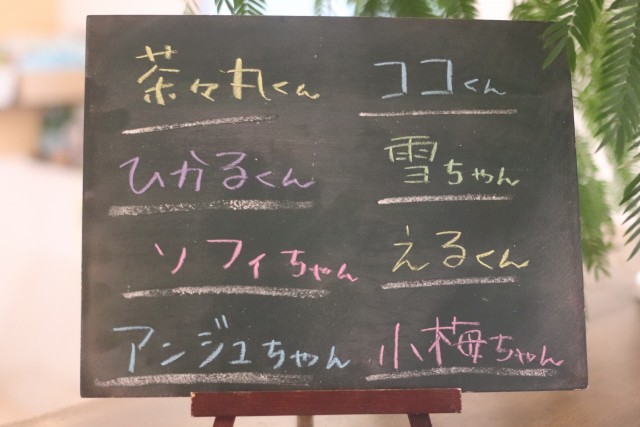 茶々丸くん ココくん
ひかるくん 雪ちゃん
ソフィちゃん えるくん
アンジュちゃん 小梅ちゃん